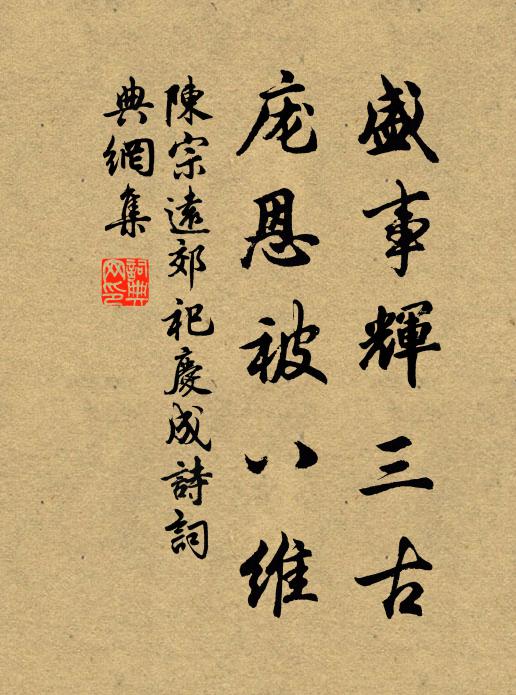 盛事輝三古
庞恩被八維
陳宗遠郊祀慶成詩詞
典網集
詞典
网印